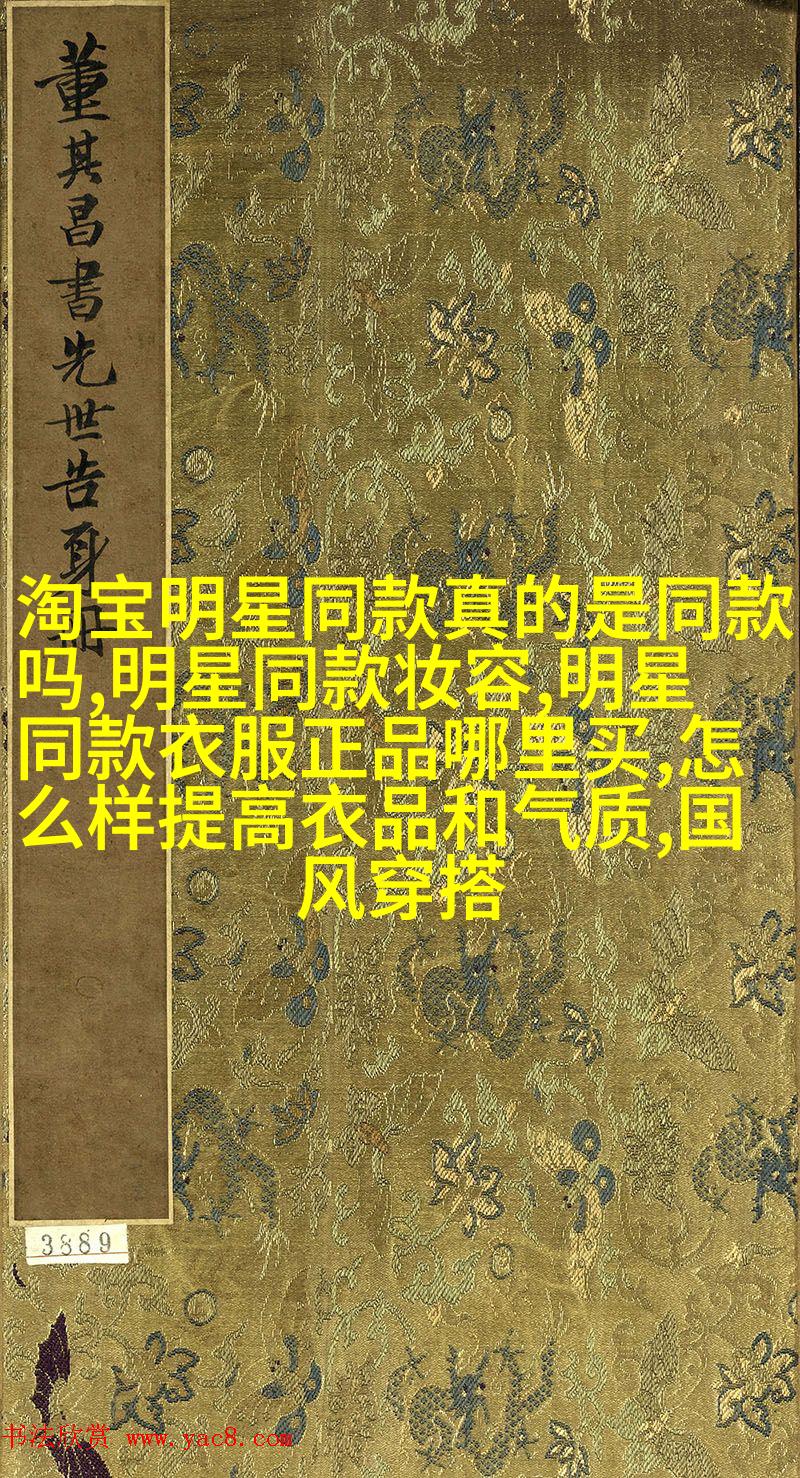 董其昌書先世告身冊
淘宝明星同款真的是同款
吗,明星同款妆容,明星
同款衣服正品哪里买,怎
么样提高衣品和气质,国
风穿搭
3889
书法欣赏 www.yac8.com